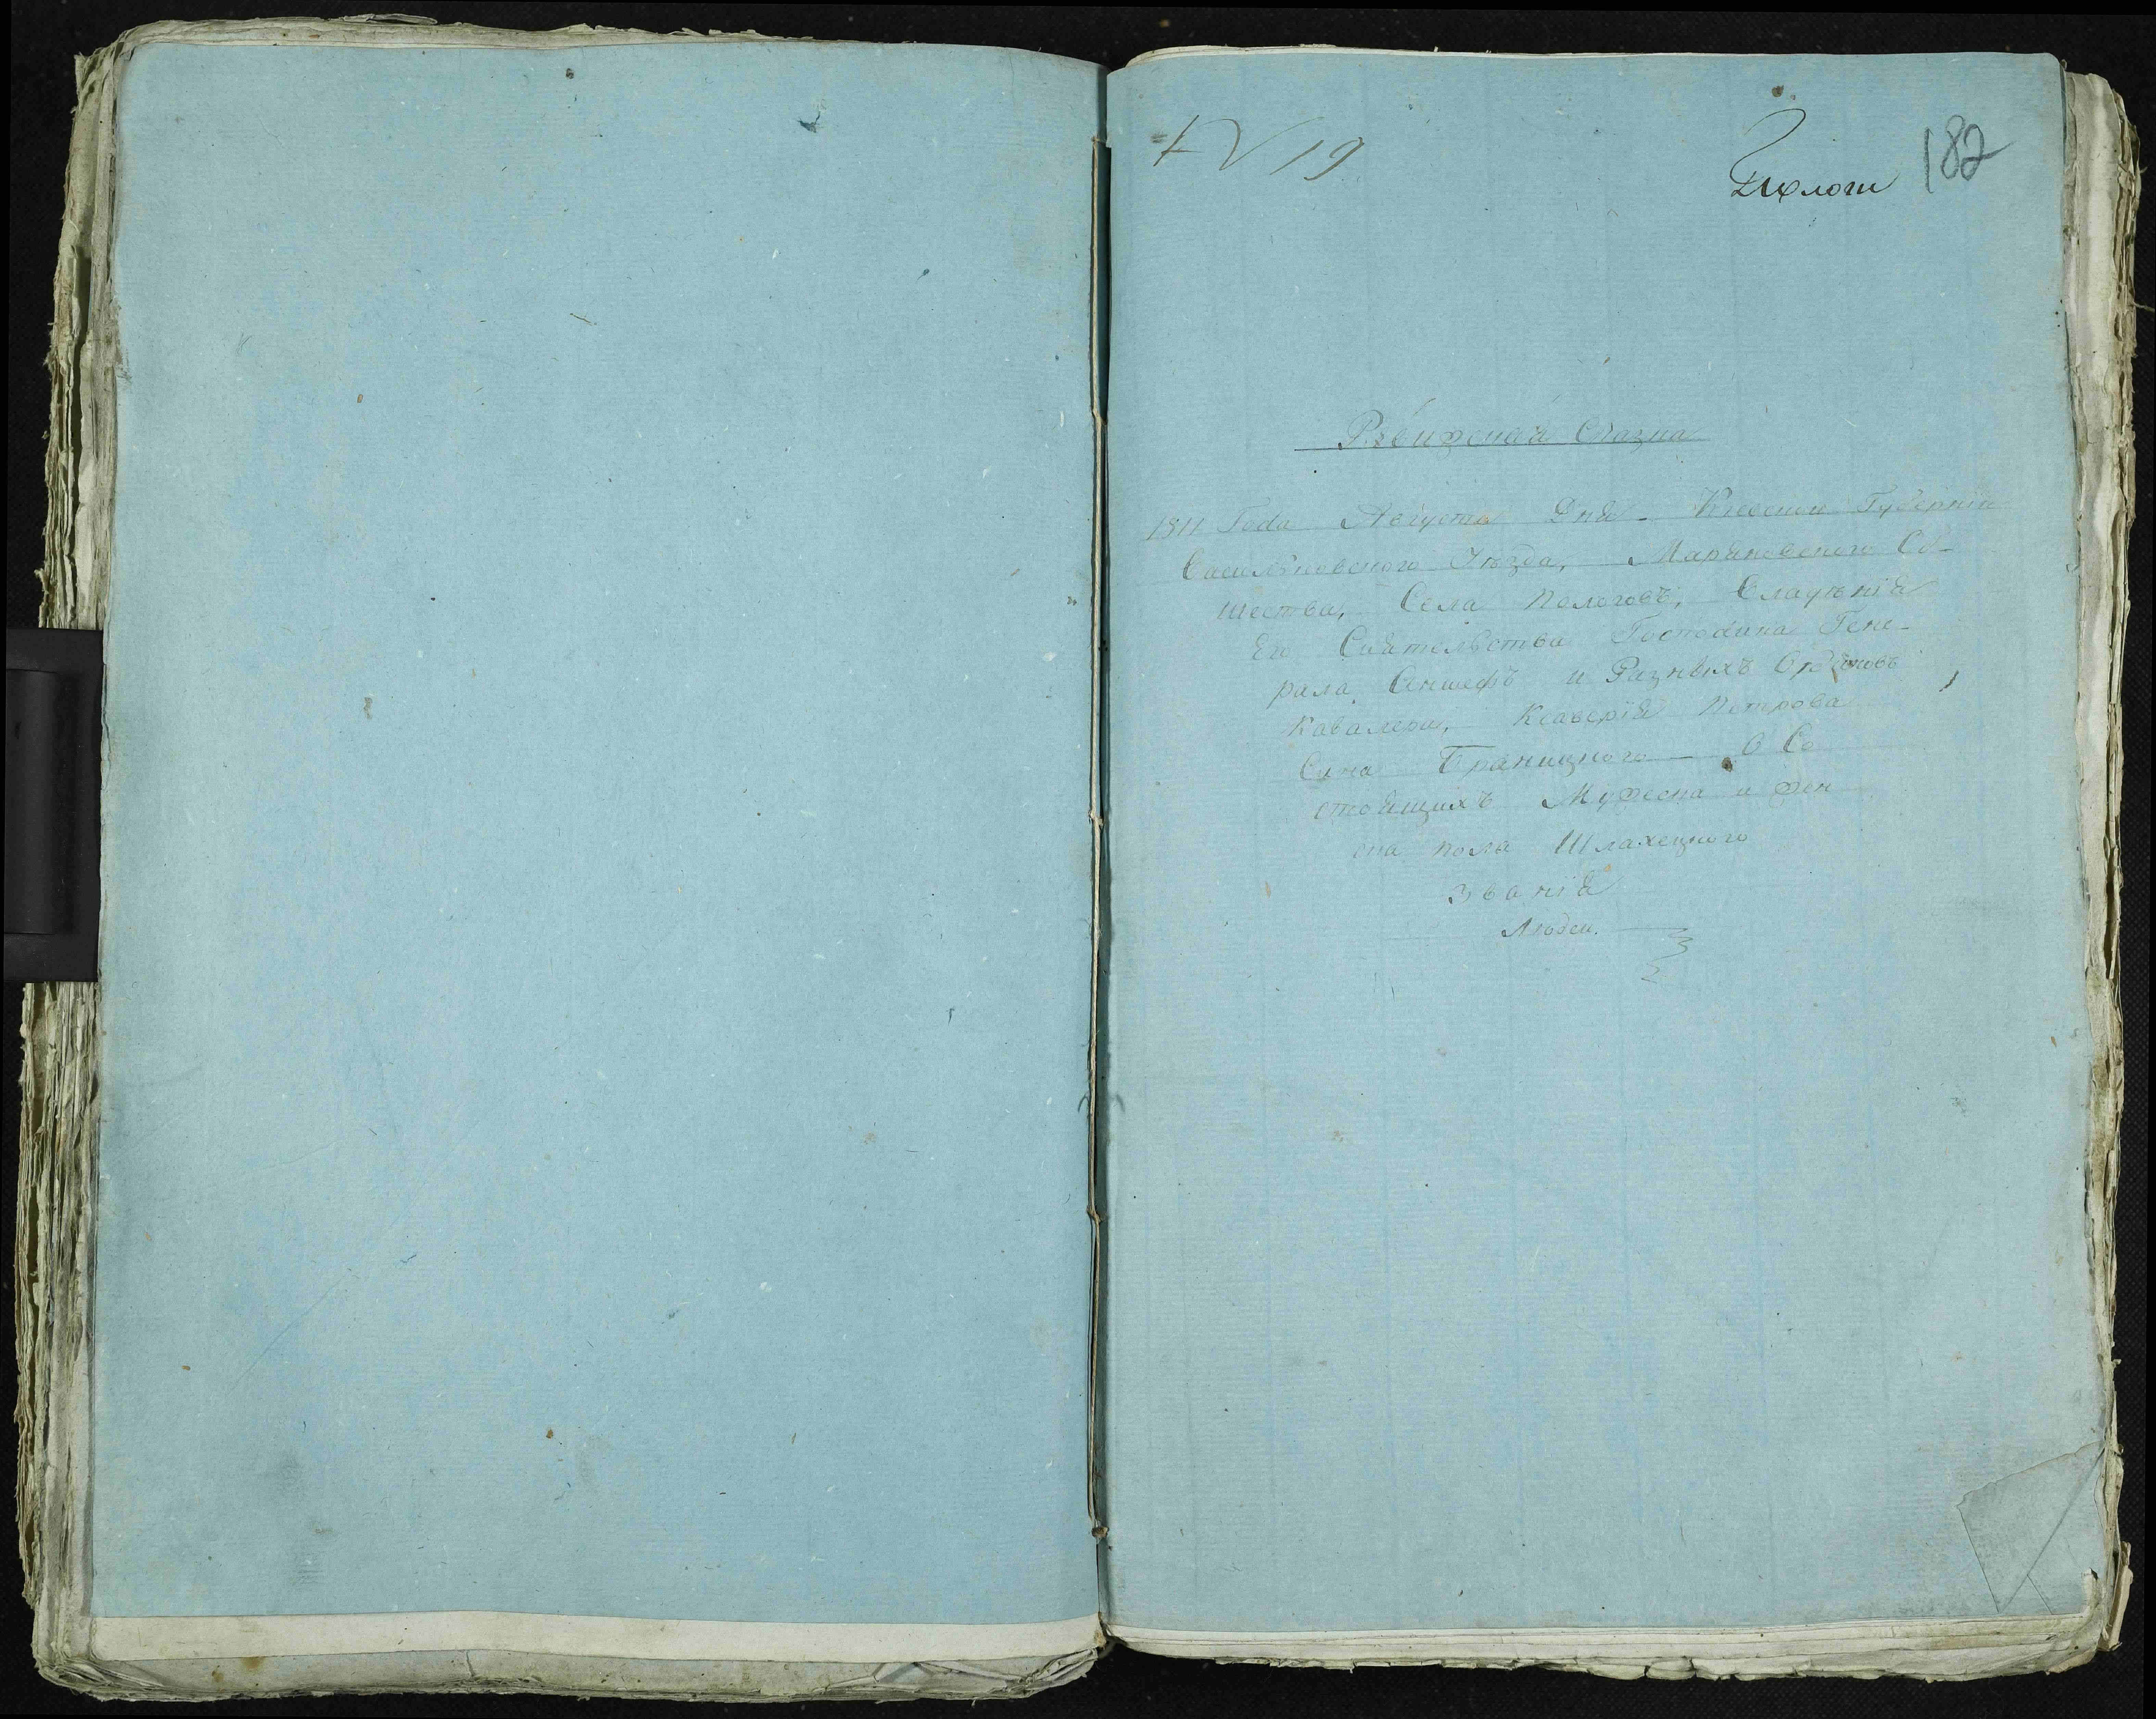 № 19
182
Ревизская Сказка
1811 Года Августа Дня - Киевской Губернiи
Василковского Уезда, Маряновского Об-
шества, Села Пологовъ, Владѣнiя
Его Сиятелства Господина Гене-
рала Аншефъ и Разныхъ Орденовъ
Кавалера, Ксаверiя Петрова
Сина Браницкого — О Со
стоящихъ Мужеска и жен
ска пола Шлахецкого
Званiя
Людеи.